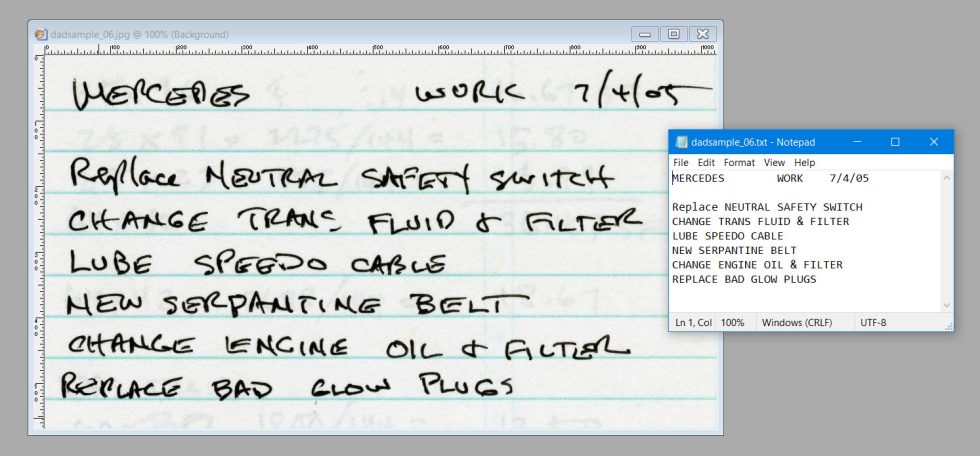 dadsample_06.jpg @ 100% (Background)
MERCEDES WORK 7/4/05
Replace NEUTRAL SAFETY SWITCH
CHANGE TRANS FLUID & FILTER
LUBE SPEEDO CABLE
NEW SERPANTINE BELT
CHANGE ENGINE OIL & FILTER
REPLACE BAD GLOW PLUGS
dadsample_06.txt - Notepad
File Edit Format View Help
MERCEDES WORK 7/4/05
Replace NEUTRAL SAFETY SWITCH
CHANGE TRANS FLUID & FILTER
LUBE SPEEDO CABLE
NEW SERPANTINE BELT
CHANGE ENGINE OIL & FILTER
REPLACE BAD GLOW PLUGS
Ln 1, Col 100% Windows (CRLF) UTF-8